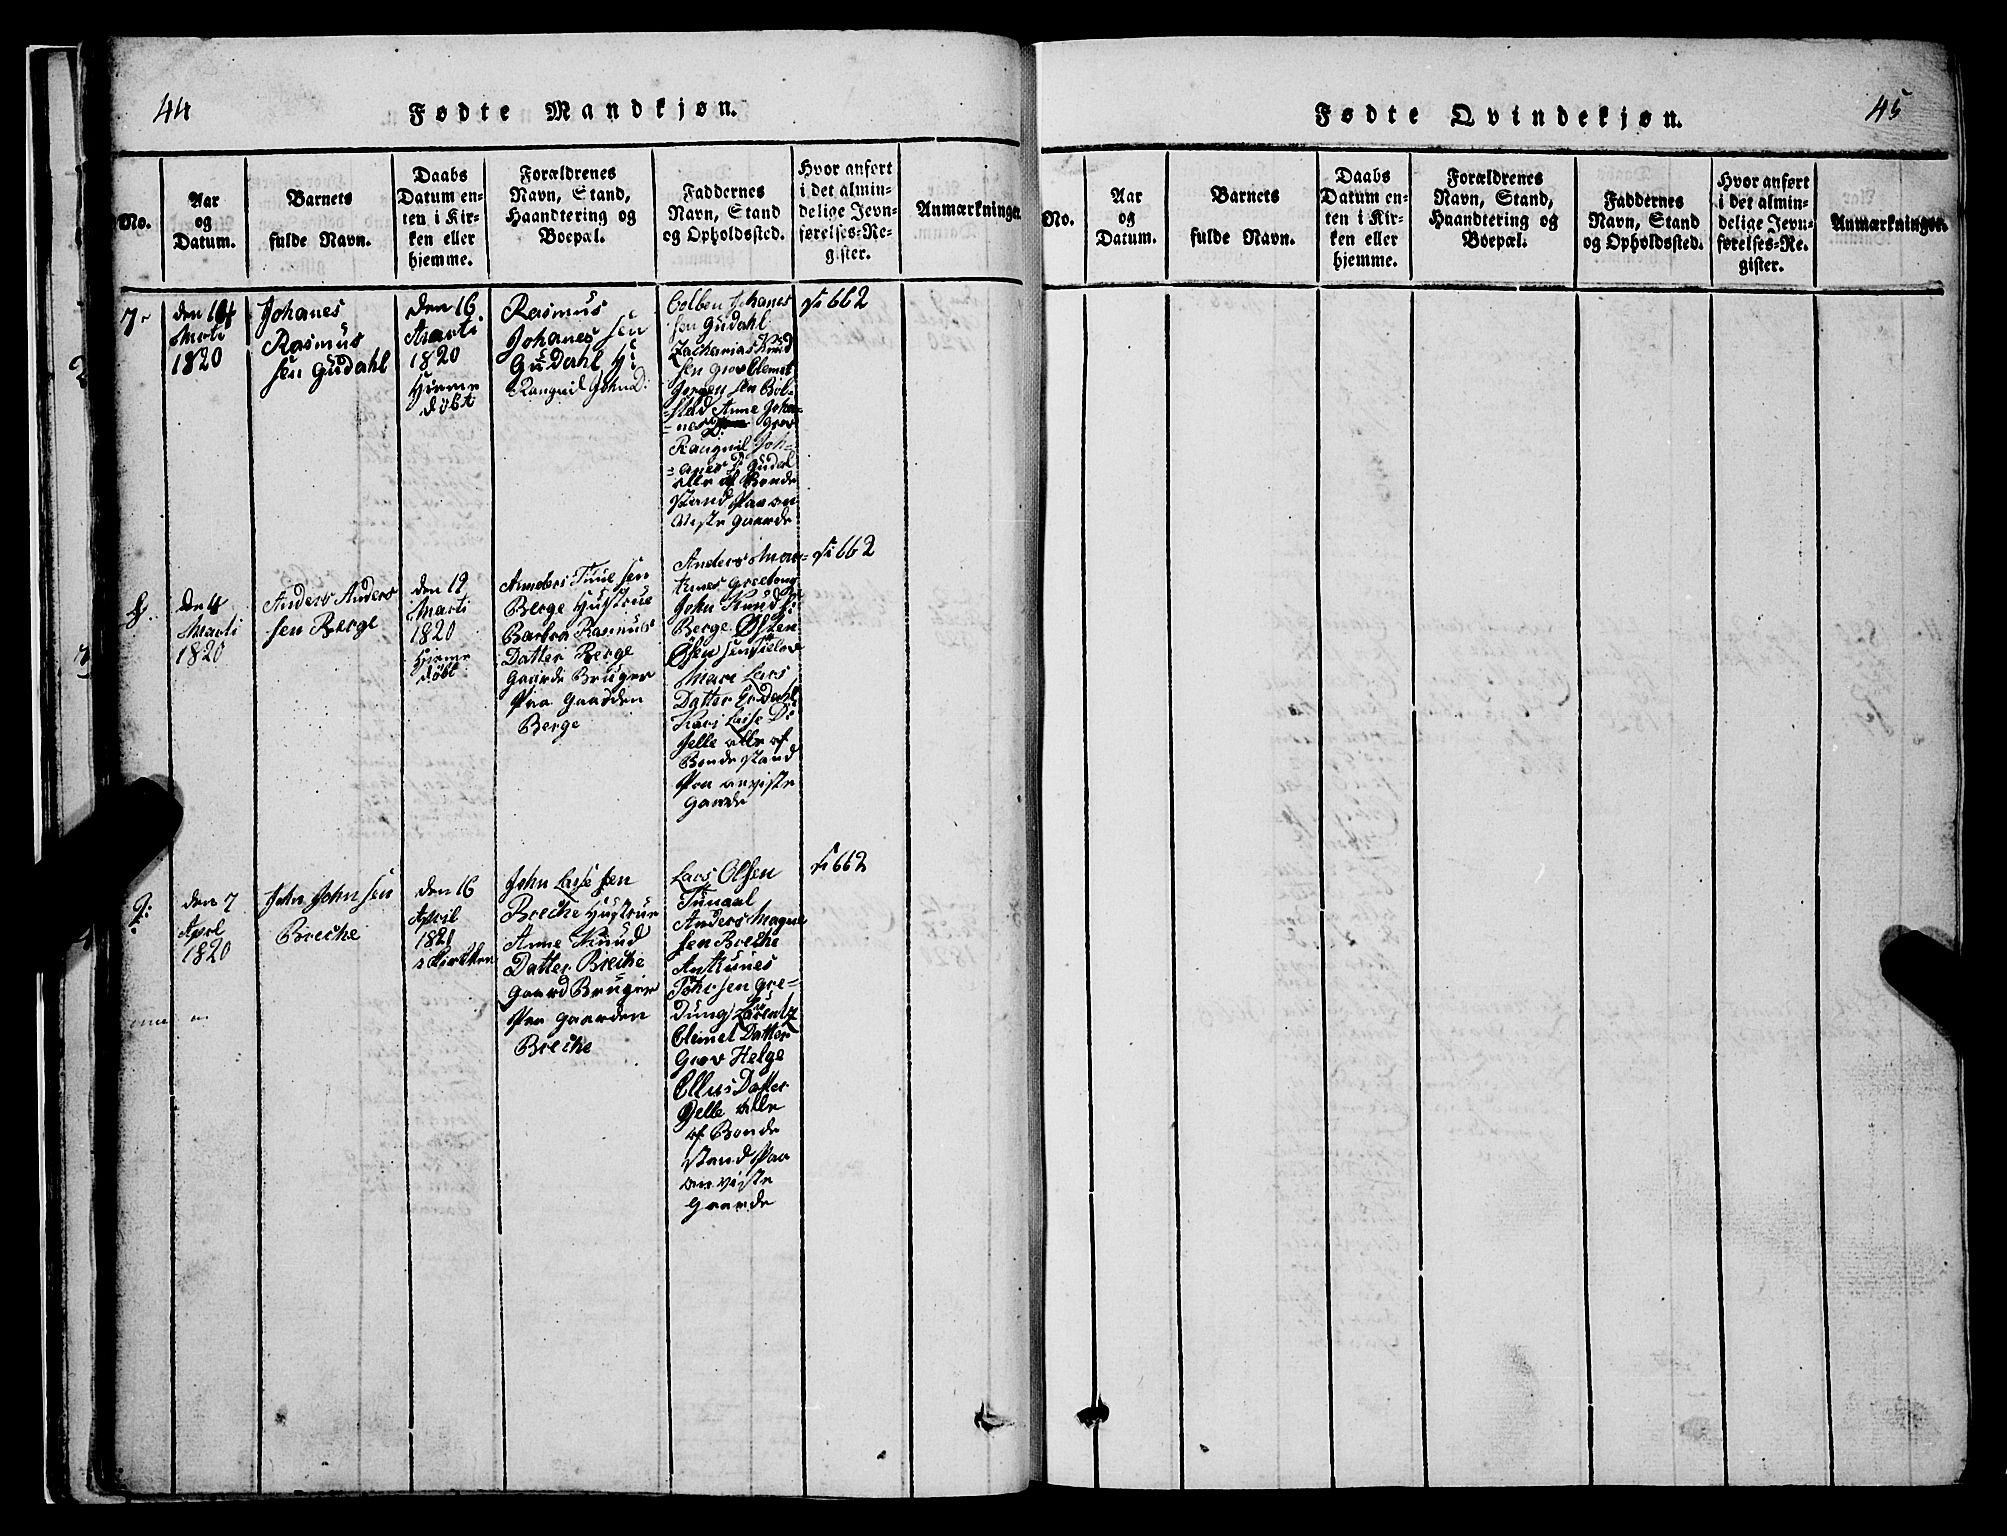 44
Fødte Mandkjøn.
No.
Aar
og
Datum.
Barnets
fulde Navn.
Daabs
Datum en-
ten i Kir-
ken eller
hjemme.
Forældrenes
Navn, Stand,
Haandtering og
Boepæl.
Faddernes
Navn, Stand
og Opholdssted.
Hvor anført
i det almin-
delige Jevn-
førelses-Re-
gister.
Anmærkninger.
7
den 14
Marti
1820
Johanes
Rasmus
sen Gudahl
den 16
Marti
1820
Hieme
døbt
Rasmus
Johanes sen
Gudahl H:
Rangnil John D:
Colben Johanes
sen Gudahl
Zacharias Knud
sen Grov Clemet
Jørgen sen Bol-
stad Anne Johan-
nes D: Grov
Rangnil Joh-
anes D: Gudal
alle af Bonde
stand paa an
viste gaarde
Fi 662
8.
den 4
Marti
1820
Anders Anders
sen Berge
den 19
Marti
1820
Hieme
døbt
Anders Tue sen
Berge Hustrue
Barbra Rasmus
Datter Berge
gaard Bruger
paa gaarden
Berge
Anders
John Knud
Berge
Mari Lars
Datter
Kari Lasse D:
Jelle alle af
Bonde stand
paa anviste
gaarde
Fi 662
9:
den 7
April
1820
John John sen
Breche
den 16
April
1820
i Kirken
John Lasse sen
Breche Hustrue
Anne Knud
Datter Breche
gaard Bruger
paa gaarden
Breche
Lars Olsen
Anders Magne
sen Breche
Antkunes
sen Gre-
Clemet Datter
Grov Helge
Ellus Datter
Jelle alle
af Bonde
stand paa
anviste
gaarde
Fi 662
45
Fødte Qvindekjøn.
No.
Aar
og
Datum.
Barnets
fulde Navn.
Daabs
Datum en-
ten i Kir-
ken eller
hjemme.
Forældrenes
Navn, Stand,
Haandtering og
Boepæl.
Faddernes
Navn, Stand
og Opholdssted.
Hvor anført
i det almin-
delige Jevn-
førelses-Re-
gister.
Anmærkninger.